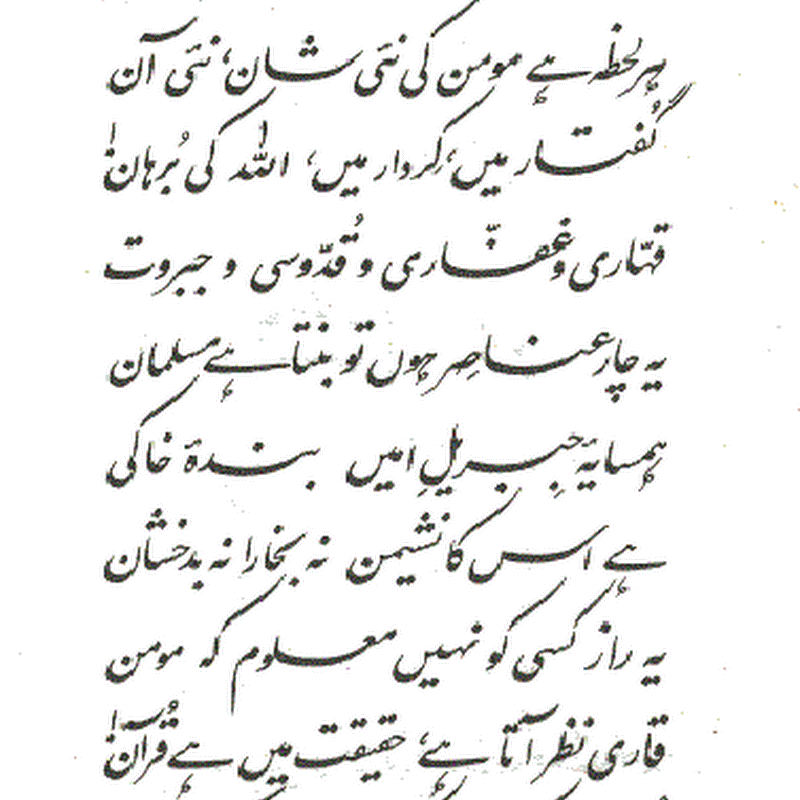 ہر لحظہ ہے مومن کی نئی شان، نئی آن
گُفتار میں، کردار میں، اللہ کی بُرہان
قہّاری و غفّاری و قُدّوسی و جبروت
یہ چار عناصِر ہوں تو بنتا ہے مسلمان
ہمسایۂ جِبریلِ امیں بندۂ خاکی
ہے اس کا نشیمن نہ بخارا نہ بدخشان
یہ راز کسی کو نہیں معلوم کہ مومن
قاری نظر آتا ہے، حقیقت میں ہے قُرآن